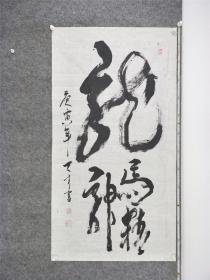 龍馬精神
庚寅年